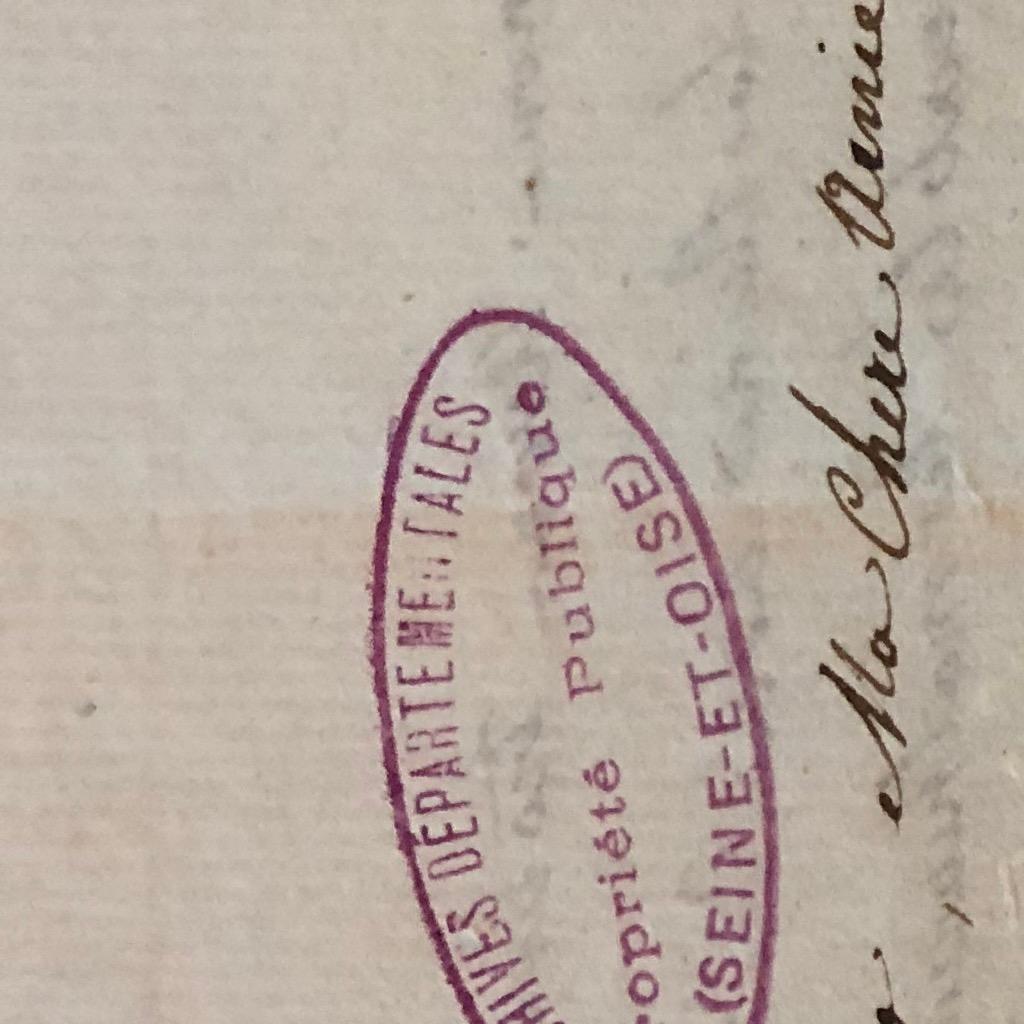 HIVES DÉPARTEMENTALES
opriété Publique
(SEINE-ET-OISE)
Ma Chere Annie